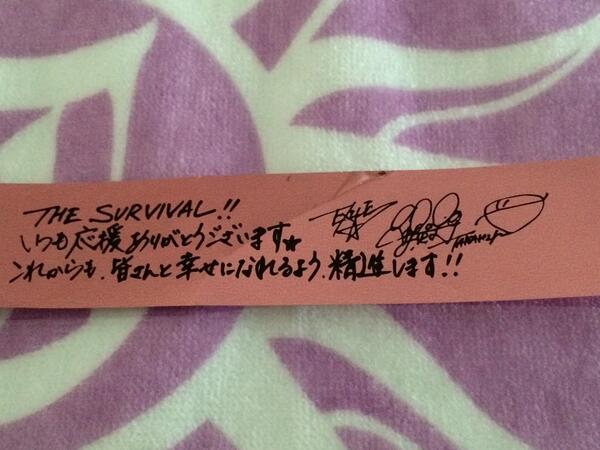 THE SURVIVAL!!
いつも応援ありがとうございます☆
これからも、皆さんと幸せになれるよう、精進します!!